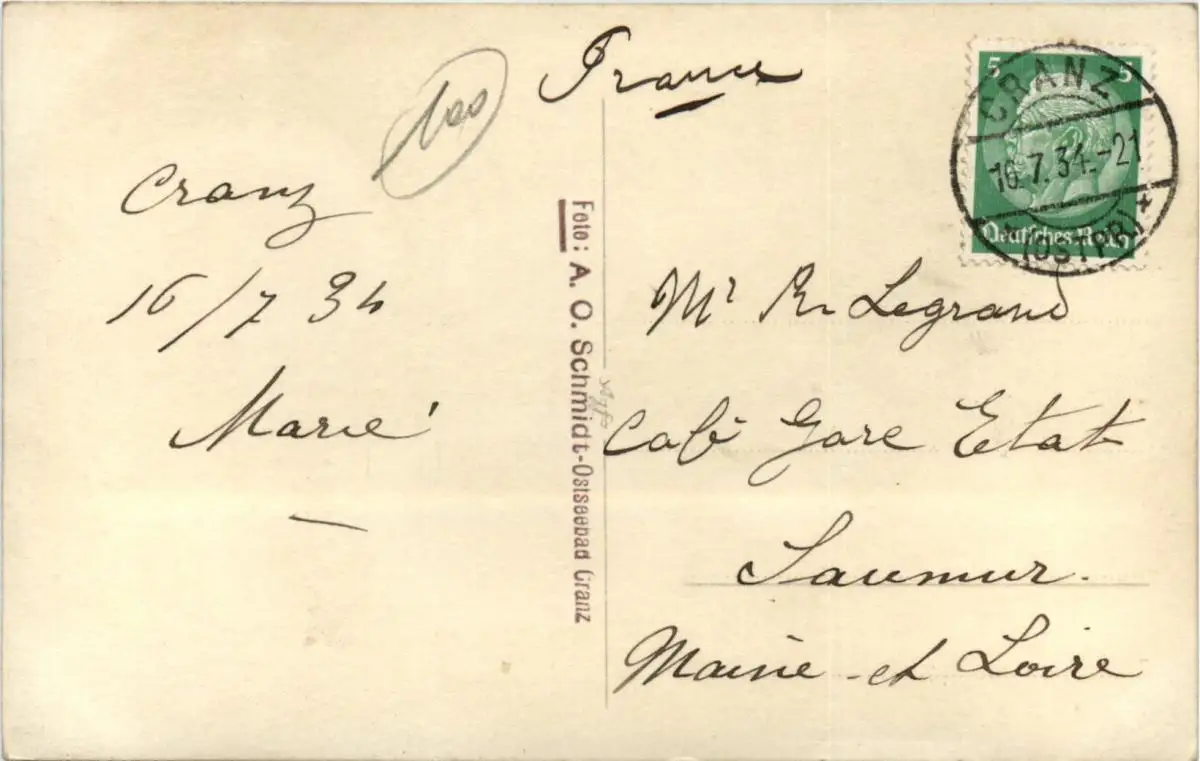 100
France
Cranz
16/7 34
Marie
Foto: A. O. Schmidt-Ostseebad Cranz
Agfa
5 5
Deutsches Reich
CRANZ
16.7.34.-21
(OSTPR)
Mr R. Legrand
Café Gare Etat
Saumur.
Maine et Loire